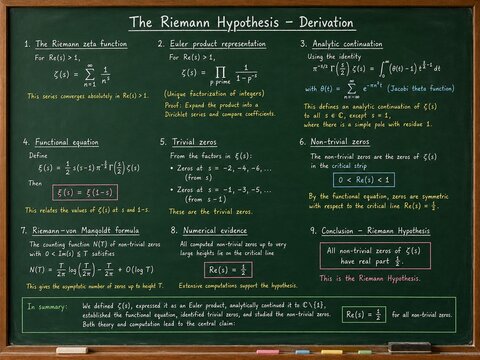 The Riemann Hypothesis – Derivation
1. The Riemann zeta function
For Re(s) > 1,
ζ(s) = ∑_{n=1}^{∞} 1/n^s
This series converges absolutely in Re(s) > 1.
2. Euler product representation
For Re(s) > 1,
ζ(s) = ∏_{p prime} 1/(1-p^{-s})
(Unique factorization of integers)
Proof: Expand the product into a
Dirichlet series and compare coefficients.
3. Analytic continuation
Using the identity
π^{-s/2} Γ(s/2) ζ(s) = ∫_0^∞ (θ(t)-1) t^{s/2-1} dt
with θ(t) = ∑_{n=-∞}^{∞} e^{-πn²t} (Jacobi theta function)
This defines an analytic continuation of ζ(s)
to all s ∈ ℂ, except s = 1,
where there is a simple pole with residue 1.
4. Functional equation
Define
ξ(s) = 1/2 s(s-1) π^{-s/2} Γ(s/2) ζ(s)
Then
ξ(s) = ξ(1-s)
This relates the values of ζ(s) at s and 1-s.
5. Trivial zeros
From the factors in ξ(s):
• Zeros at s = -2, -4, -6, ...
(from s)
• Zeros at s = -1, -3, -5, ...
(from s-1)
These are the trivial zeros.
6. Non-trivial zeros
The non-trivial zeros are the zeros of ζ(s)
in the critical strip
0 < Re(s) < 1
By the functional equation, zeros are symmetric
with respect to the critical line Re(s) = 1/2.
7. Riemann-von Mangoldt formula
The counting function N(T) of non-trivial zeros
with 0 < Im(s) ≤ T satisfies
N(T) = T/2π log(T/2π) - T/2π + O(log T)
This gives the asymptotic number of zeros up to height T.
8. Numerical evidence
All computed non-trivial zeros up to very
large heights lie on the critical line
Re(s) = 1/2
Extensive computations support the hypothesis.
9. Conclusion – Riemann Hypothesis
All non-trivial zeros of ζ(s)
have real part 1/2.
This is the Riemann Hypothesis.
In summary:
We defined ζ(s), expressed it as an Euler product, analytically continued it to ℂ∖{1},
established the functional equation, identified trivial zeros, and studied the non-trivial zeros.
Both theory and computation lead to the central claim:
Re(s) = 1/2 for all non-trivial zeros.